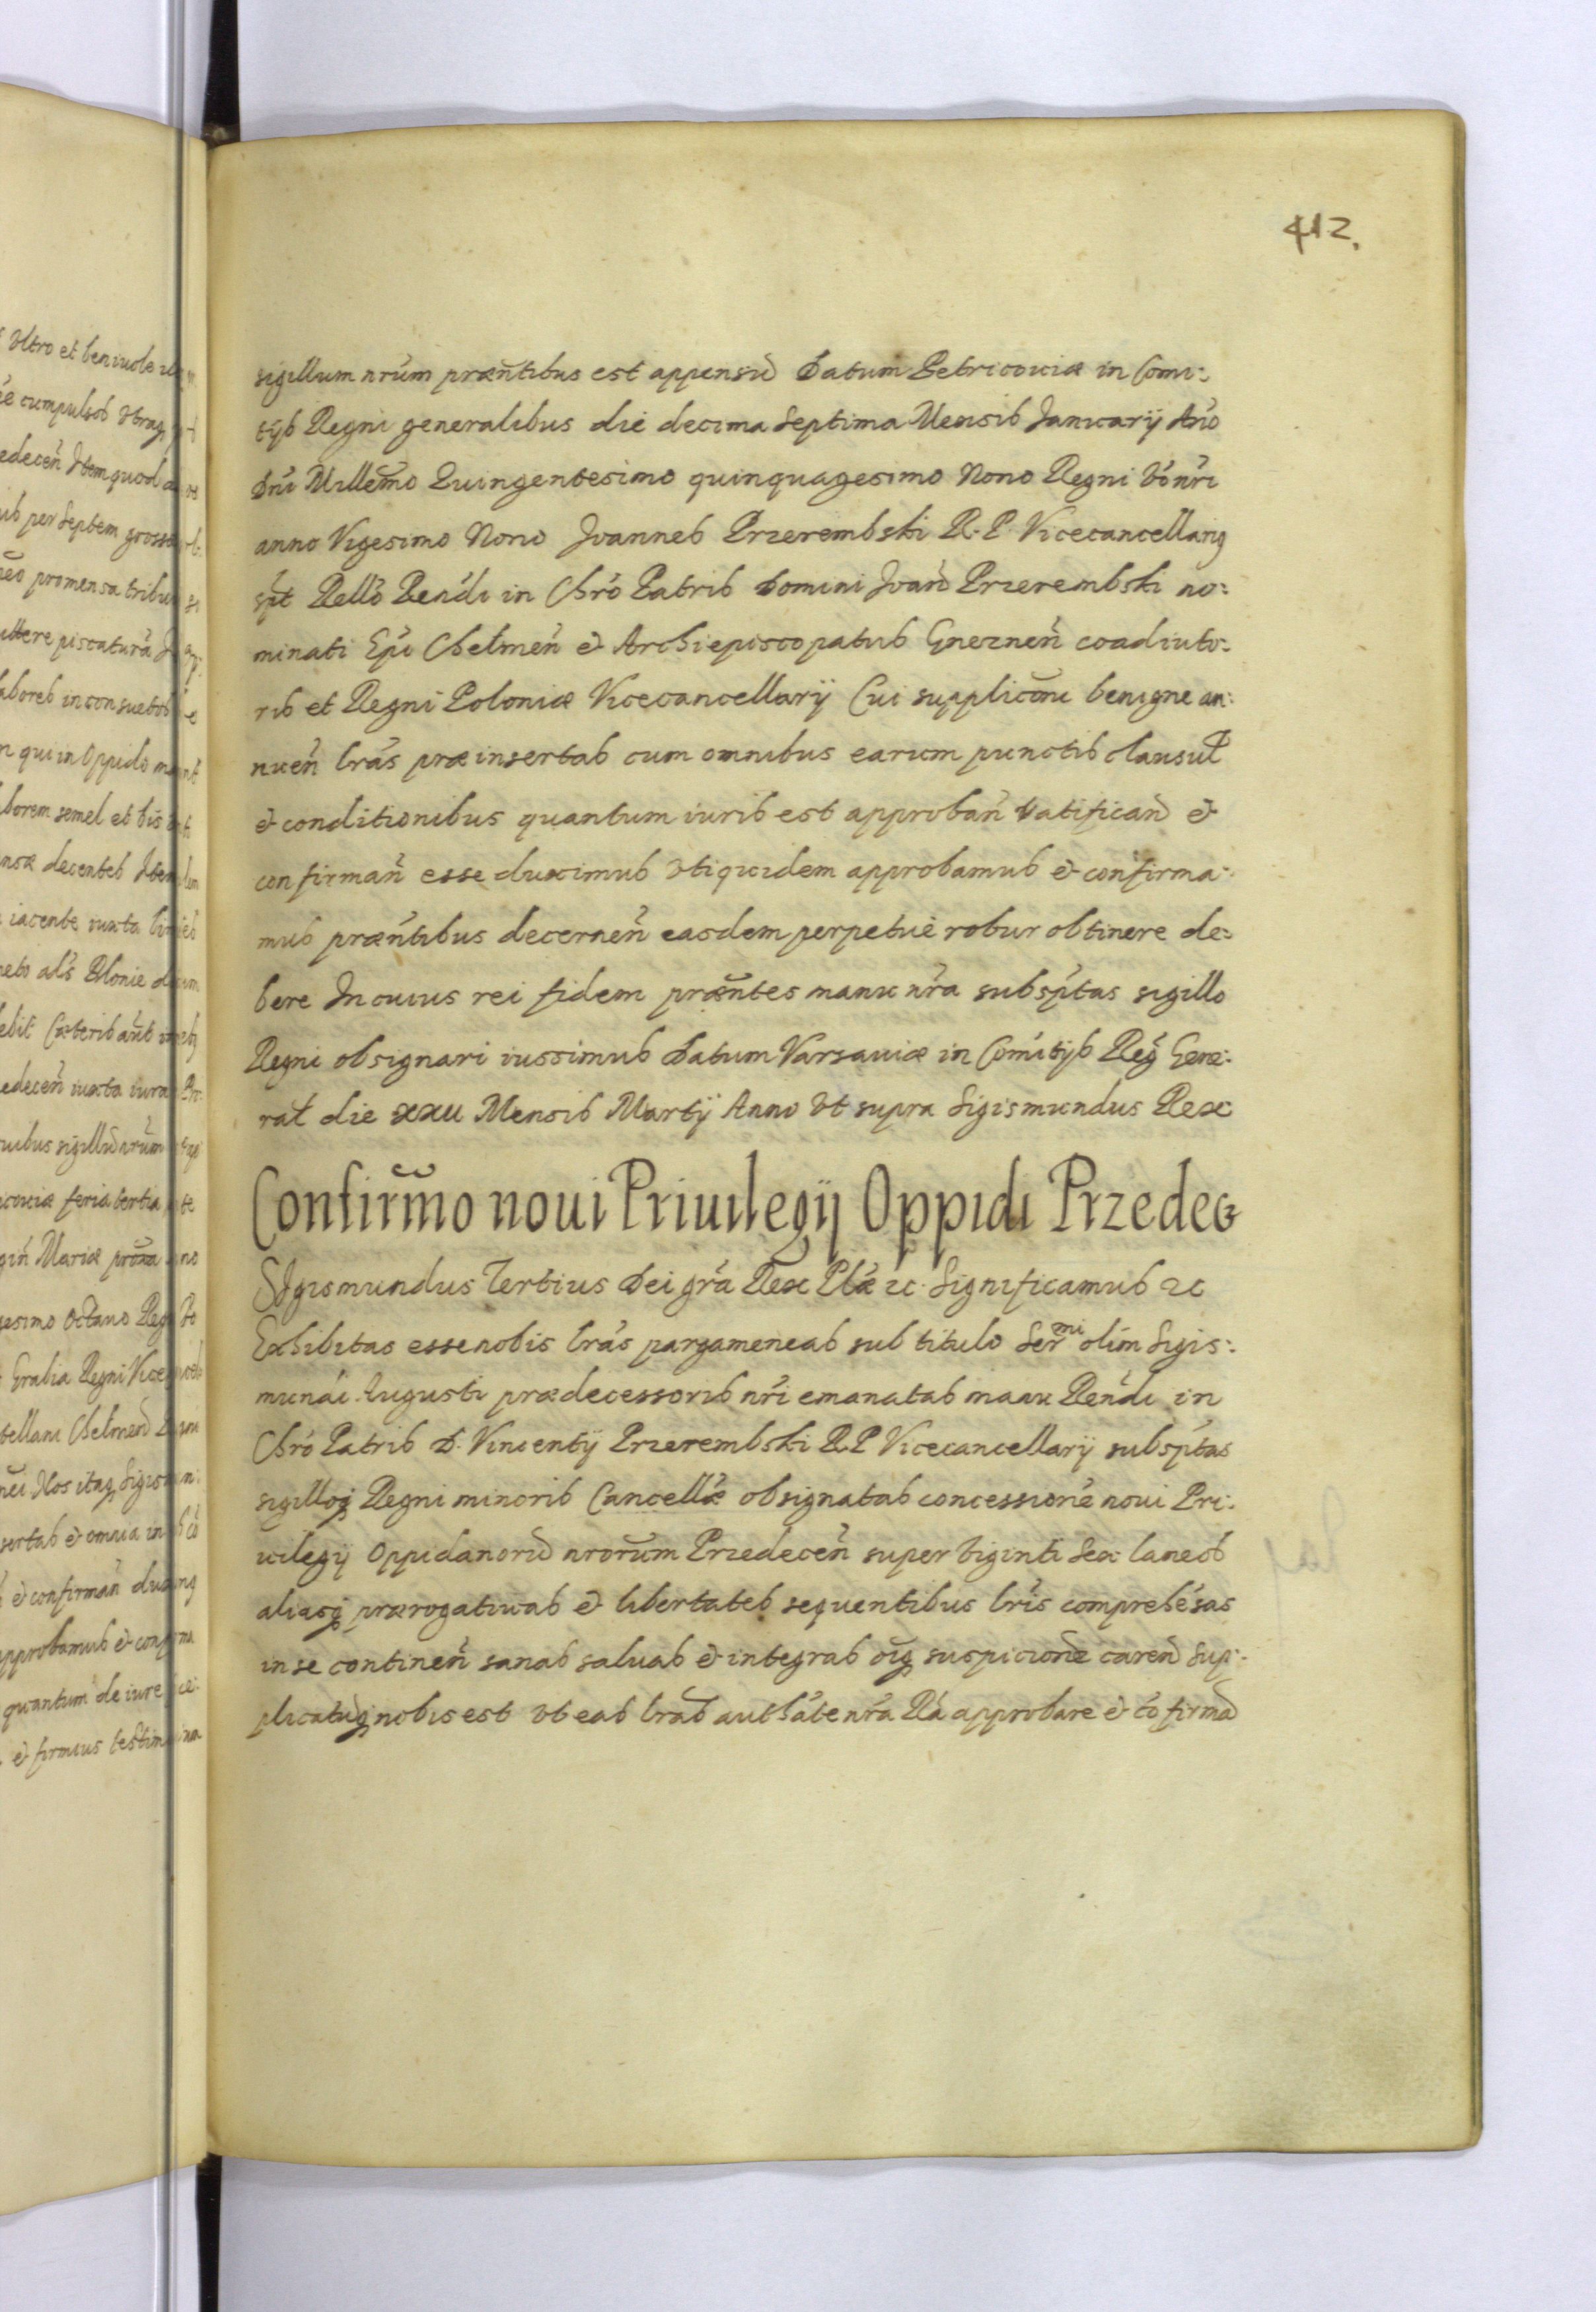 412.
sigillum nrũm præntibus est appensũ Datum Petricouiæ in Comi:
tijs Regni generalibus die decima Septima Mensis Januarij Año
Dñi Millemo Quingentesimo quinquagesimo Nono Regni vo nri
anno Vigesimo Nono Joannes Przerembski R. P. Vicecancellarig
spt Rello Rendi in Chrõ Patris Domini Joañ Przerembski no:
minati Epi Chelmeñ & Archiepiscopatus Gnezneñ coadiuto:
ris et Regni Poloniæ Vicecancellarij Cui suppliconi benigne an:
nueñ lras præinsertas cum omnibus earum punctis clausul
& conditionibus quantum iuris est approbañ ratificañ &
confirmañ esse duximus vti quidem approbamus & confirma:
mus præntibus decerneñ easdem perpetuè robur obtinere de:
bere In cuius rei fidem præntes manu nra subsptas sigillo
Regni obsignari iussimus Datum Varsauiæ in Comitijs Reg Gene:
ral die xxii Mensis Martij Anno vt supra Sigismundus Rex
Confirmo noui Priuilegij Oppidi Przedec
SJgismundus Tertius Dei gra Rex Plæ &c. Significamus &c
Exhibitas esse nobis lras pargameneas sub titulo Ser mi olim Sigis:
mundi Augusti prædecessoris nri emanatas manu Rendi in
Chro Patris D. Vincentij Przerembski R. P. Vicecancellarij subsptas
sigilloq Regni minoris Cancellæ obsignatas concessionẽ noui Pri:
uilegij Oppidanorũ nrorum Przedeceñ super viginti Sex laneos
aliasq prærogatiuas & libertates sequentibus lris comprehẽsas
in se contineñ sanas saluas & integras oiq suspicione careñ Sup:
plicatũq nobis est vt eas lras authãte nra Ra approbare & cõfirmañ